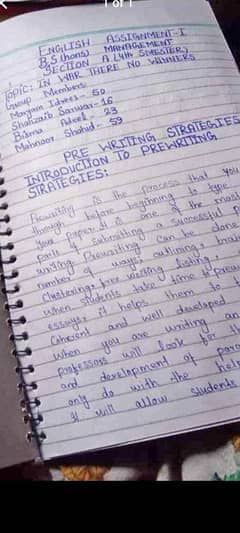 1 of 1
ENGLISH ASSIGNMENT-I
B.S (hons) MANAGEMENT
SECTION A (4th SEMESTER)
TOPIC: IN WAR THERE NO WINNERS
Group Members
Maryam Idrees - 50
Shahzaib Sarwar - 16
Bisma Adeel - 23
Mahnoor Shahid - 59
PRE WRITING STRATEGIES
INTRODUCTION TO PREWRITING
STRATEGIES:
Prewriting is the process that you
though before beginning to type
your paper. It is one of the most
part of submitting a successful
writing. Prewriting can be done
number of ways: outlining,
clustering, free writing, listing,
when students take time to
essays, it helps them to
Coherent and well developed
When you are writing an
professors will look for
and development of
only do with the
It will allow students